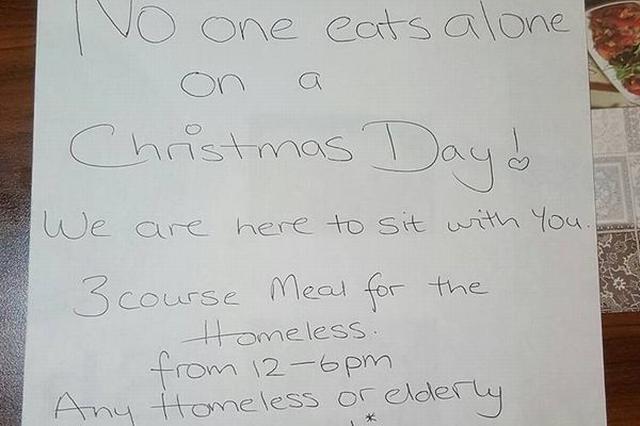 No one eats alone
on a
Christmas Day!
We are here to sit with You.
3 course Meal for the
Homeless.
from 12-6pm
Any Homeless or elderly
*